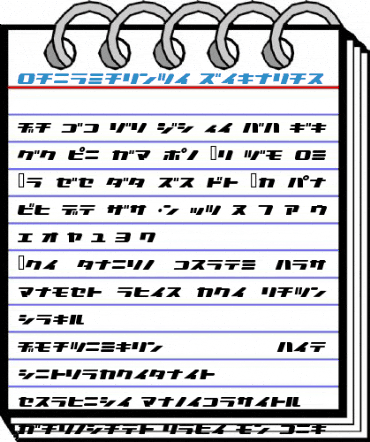 ロチニラミチリンツイ ズイキナリチス
ヂヂ ゴコ ゾソ ジシ ィイ バハ ギキ
グク ピニ ガマ ポノ リ ヅモ ロミ
ラ ゼセ ダタ ズス ドト カ パナ
ビヒ デテ ザサ ・ン ッツ ヌ フ ア ウ
エ オ ヤ ユ ヨ ワ
クイ タナニリノ コスラテミ ハラサ
マナモセト ラヒイス カクイ リチツン
シラキル
ヂモチツニミキリン ハイテ
シニトリラカクイタナイト
セスラヒニシイ マナノイコラサイトル
ガチリノシチテト リラヒイ モン コニキ